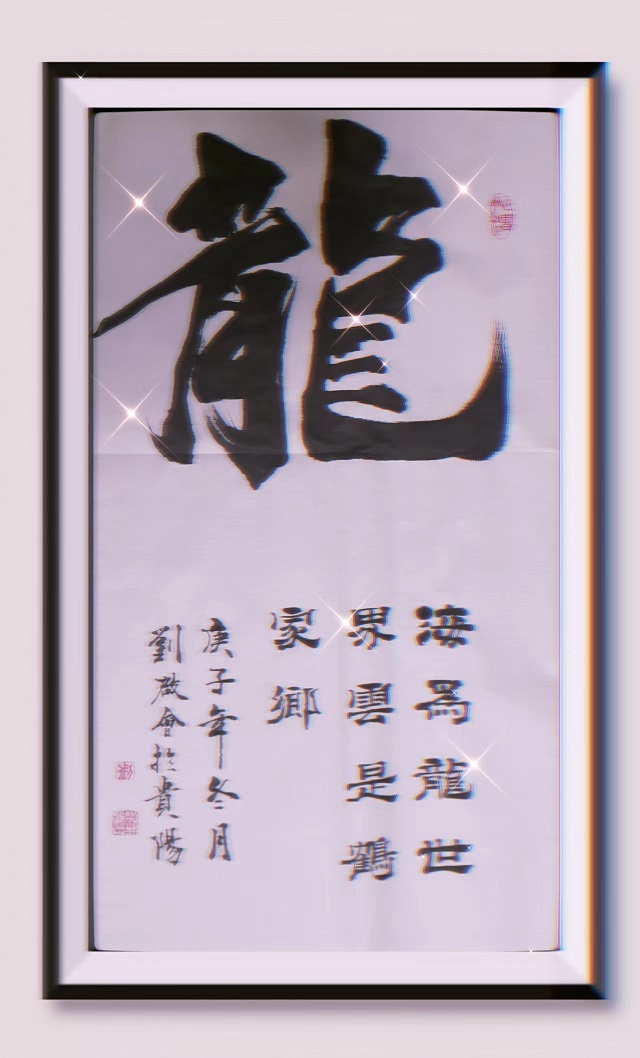 龍
海為龍世
界雲是鶴
家鄉
庚子年冬月
劉啟會於貴陽